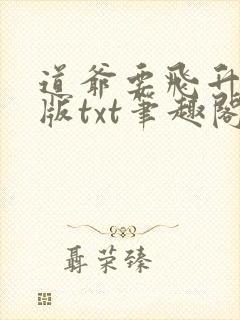 道爷要飞升
版txt笔趣阁
聂荣臻